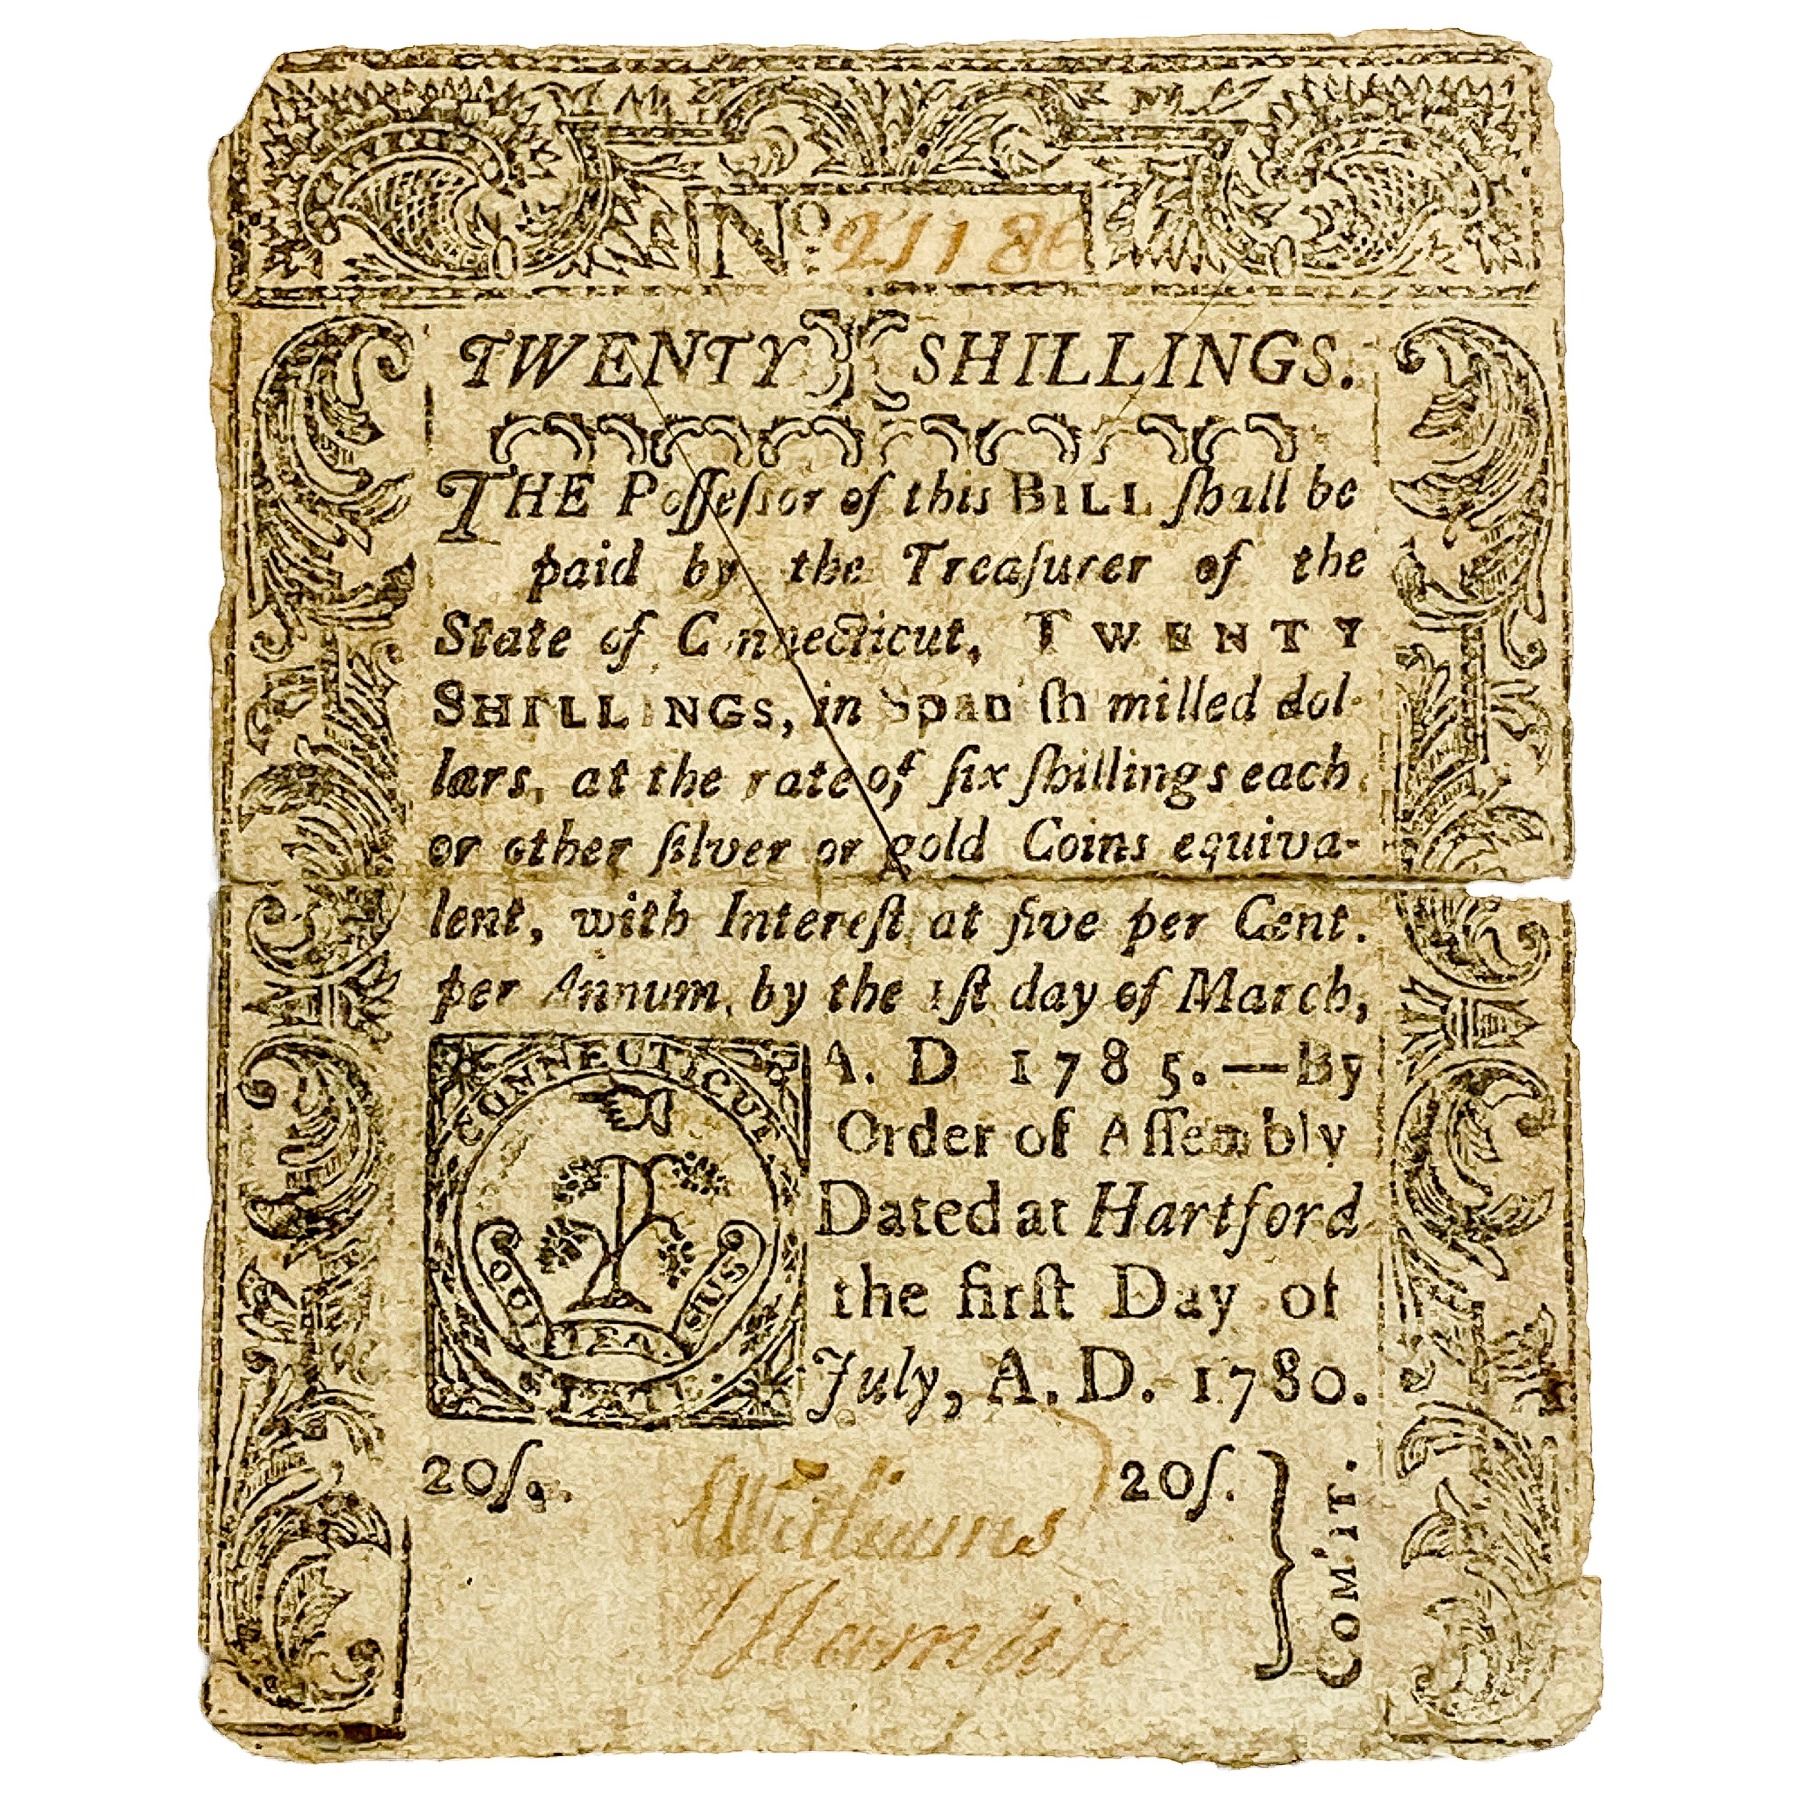 No. 21186
TWENTY SHILLINGS.
THE Poſſeſsor of this BILL ſhall be
paid by the Treaſurer of the
State of Connecticut, TWENTY
SHILLINGS, in Spaniſh milled dol-
lars, at the rate of ſix ſhillings each,
or other ſilver or gold Coins equiva-
lent, with Intereſt at five per Cent.
per Annum, by the 1ſt day of March,
A. D 1785.—By
Order of Aſſembly
Dated at Hartford
the firſt Day of
July, A.D. 1780.
CONNECTICUT
SUS
20ſ. 20ſ.
Williams
COM'IT.